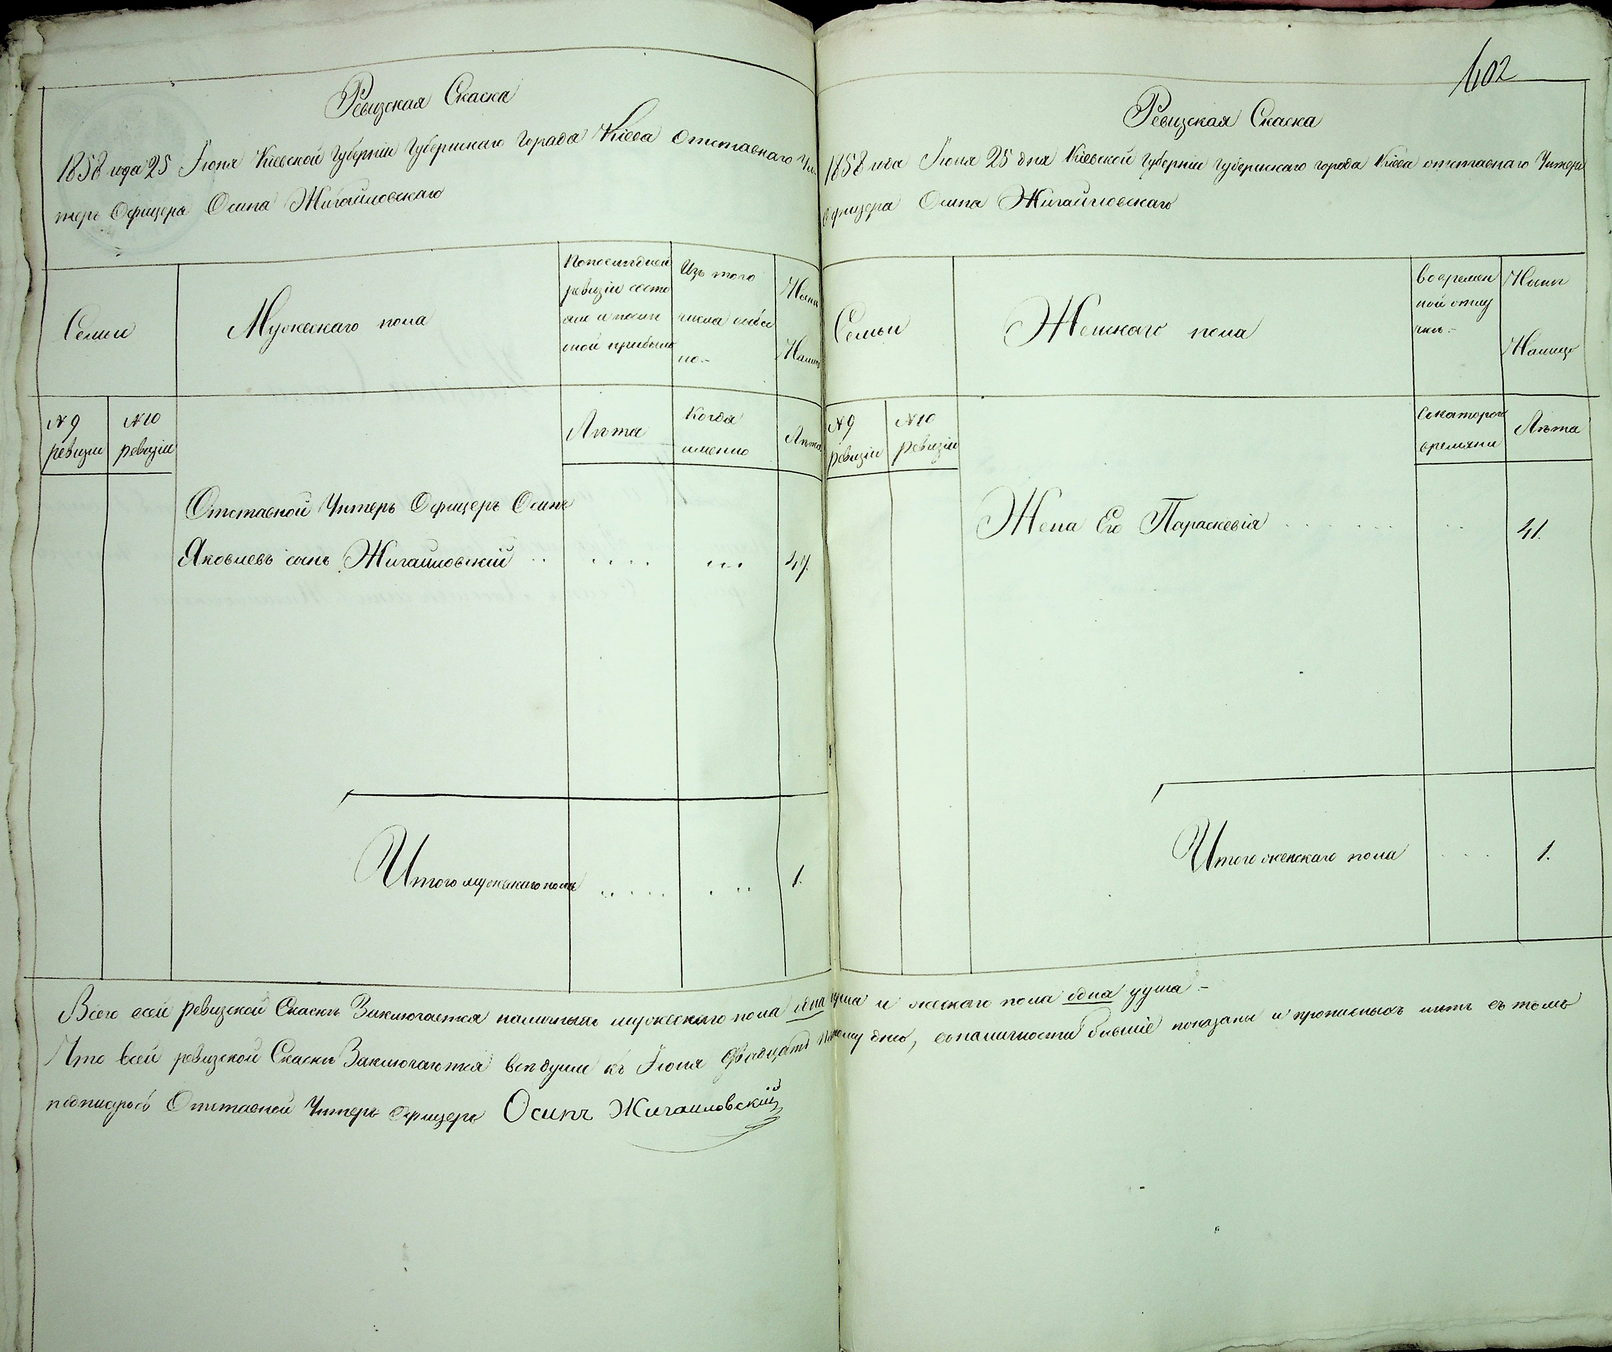 402
Ревизская Скаска
1858 года 25 Іюня Кіевской Губерніи Губернскаго Города Кіева Отставнаго Ун-
теръ Офицера Осипа Жигайловскаго
Семьи
Мужескаго пола
По последней
ревизіи состо
яло и после
оной прибыло
Изъ того
числа выбы
ло.-
Ныне
На лицо
№ 9
ревизіи
№ 10
ревизіи
Лѣта
Когда
именно
Лѣта
Отставной Унтеръ Офицеръ Осипъ
Яковлевъ сынъ Жигайловскій
47.
Итого мужескаго пола
1.
Ревизская Скаска
1858 года Іюня 25 дня Кіевской Губерніи Губернскаго города Кіева отставнаго Унтеръ
Офицера Осипа Жигайловскаго
Семьи
Женскаго пола
Во времен
ной отлу
чкѣ.-
Ныне
На лицо
№ 9
ревизіи
№ 10
ревизіи
Съ котораго
времяни
Лѣта
Жена Его Параскевія
41.
Итого женскаго пола
1.
Всего всей ревизской Скаскѣ Заключается наличныхъ мужескаго пола одна душа и женскаго пола одна душа -
Что всей ревизской Скаскѣ Заключаются все души къ Іюня двадцать пятому дню, въ наличности бывшіе показаны и прописныхъ нетъ въ томъ
подписуюсь Отставной Унтеръ Офицеръ Осипъ Жигайловскій